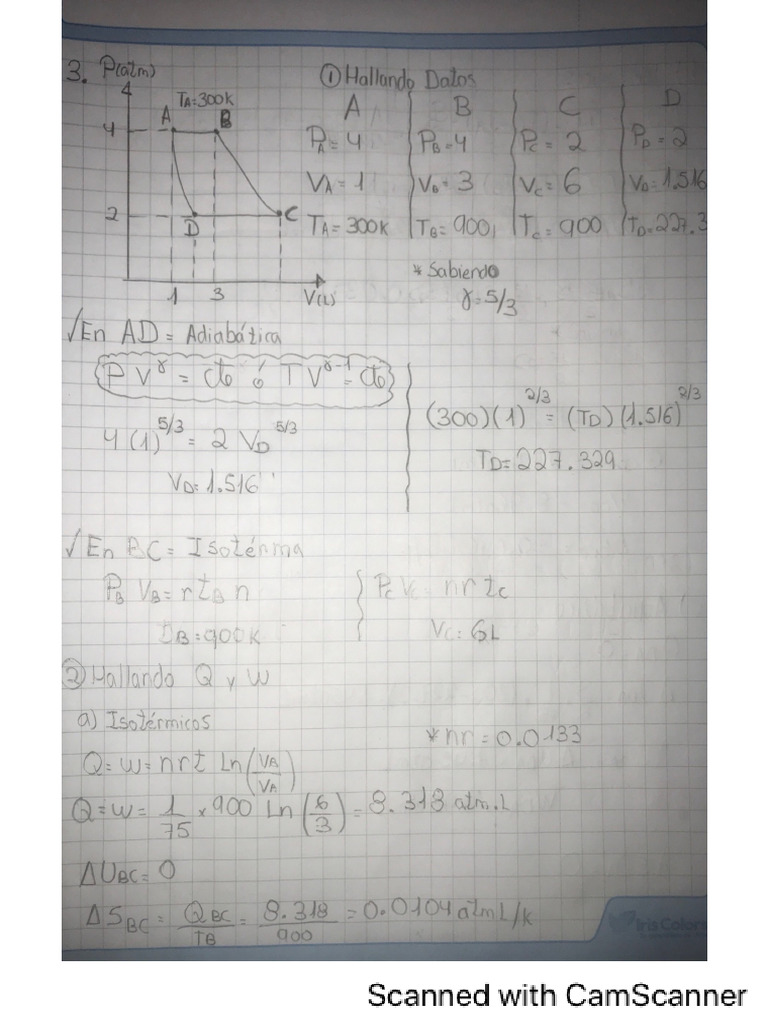 3. P(atm)
① Hallando Datos
4
TA=300K
A B
2
D C
1 3 V(L)
A B C D
PA= 4 PB=4 PC= 2 PD= 2
VA= 1 VB= 3 VC= 6 VD= 1.516
TA= 300K TB= 900 TC= 900 TD=227.3
* Sabiendo
γ= 5/3
√En AD= Adiabática
PV^γ = cte ó TV^γ-1 = cte
4 (1)^5/3 = 2 VD^5/3
VD= 1.516
(300)(1)^2/3 = (TD)(1.516)^2/3
TD= 227.329
√En BC= Isotérma
PB VB= r tB n
TB= 900K
PC VC= nr tC
VC= 6L
② Hallando Q y W
a) Isotérmicos
*nr = 0.0133
Q= W= nrt Ln(VB/VA)
Q=W= 1/75 × 900 Ln(6/3)= 8.318 atm.L
ΔUBC= 0
ΔSBC= QBC/TB = 8.318/900 = 0.0104 atmL/K
Iris Color
Scanned with CamScanner